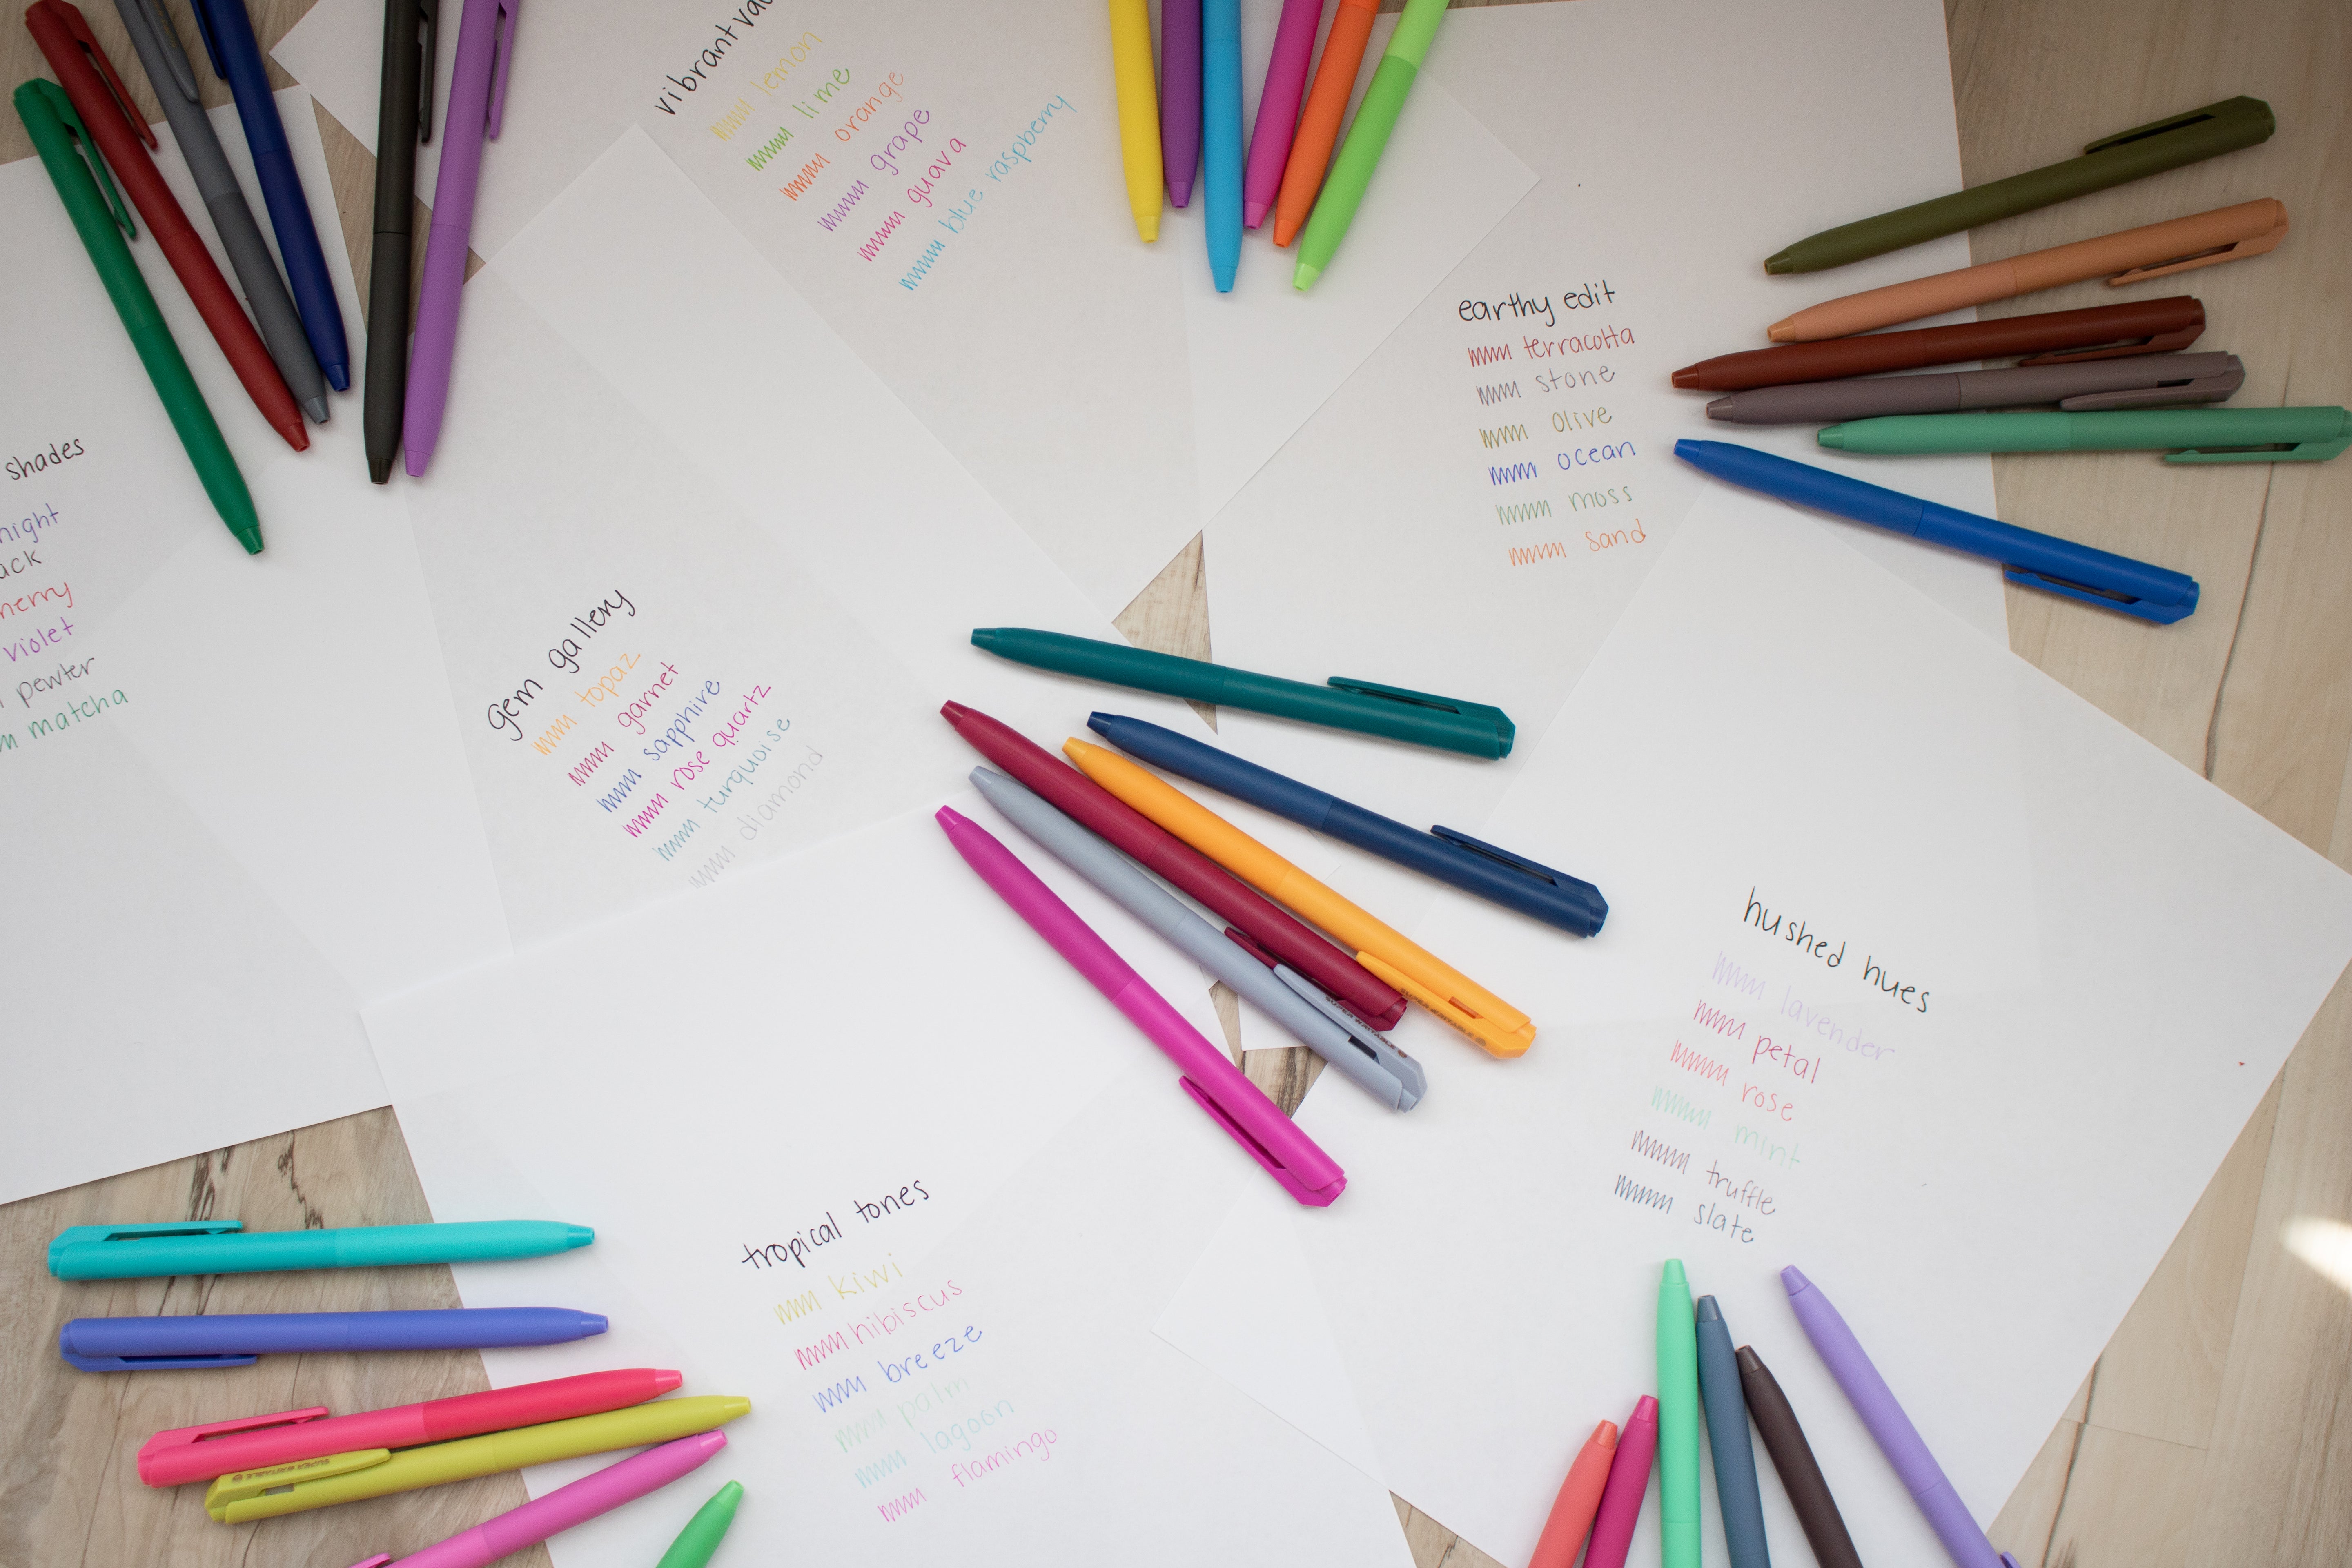 lemon
lime
orange
grape
guava
blue raspberry
earthy edit
terracotta
stone
olive
ocean
moss
sand
shades
violet
pewter
matcha
gem gallery
topaz
garnet
sapphire
rose quartz
turquoise
diamond
hushed hues
lavender
petal
rose
mint
truffle
slate
tropical tones
kiwi
hibiscus
breeze
palm
lagoon
flamingo
SUPER WRITABLE
SUPER WRITABLE
SUPER WRITABLE